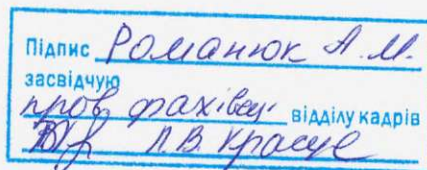 Підпис Романюк А.М.
засвідчую
пров фахівець відділу кадрів
Л.В.